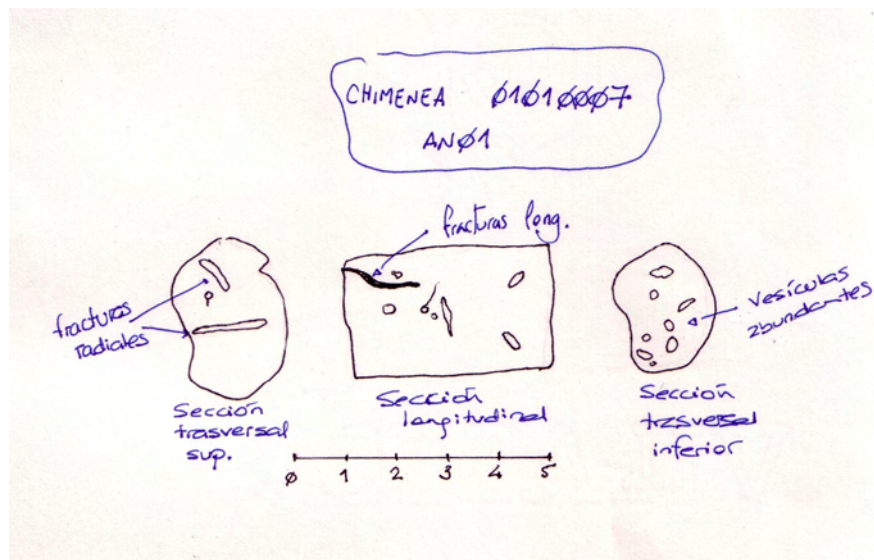 CHIMENEA 01010007
AN01
fracturas long.
fracturas
radiales
vesículas
abundantes
Sección
trasversal
sup.
Sección
longitudinal
Sección
trasversal
inferior
0 1 2 3 4 5